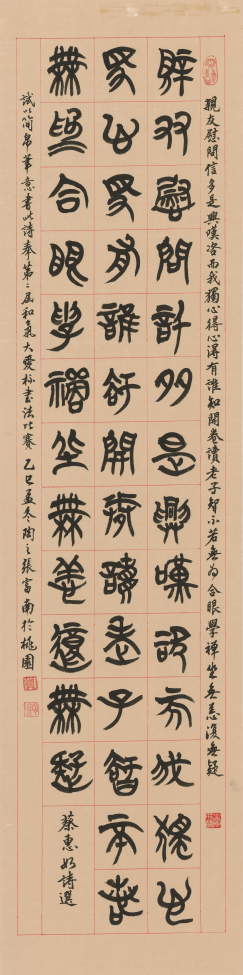 親友慰問信多是興嘆咨而我獨心得心得有誰知開卷讀老子智不若無為合眼學禪坐無恙復無疑
親友慰問信多是興嘆咨而我獨心
得心得有誰知開卷讀老子智不若
無為合眼學禪坐無恙復無疑
蔡惠如詩選
試以簡帛筆意書此詩奉第二屆和氣大愛杯書法比賽 乙巳孟冬陶之張富南於桃園